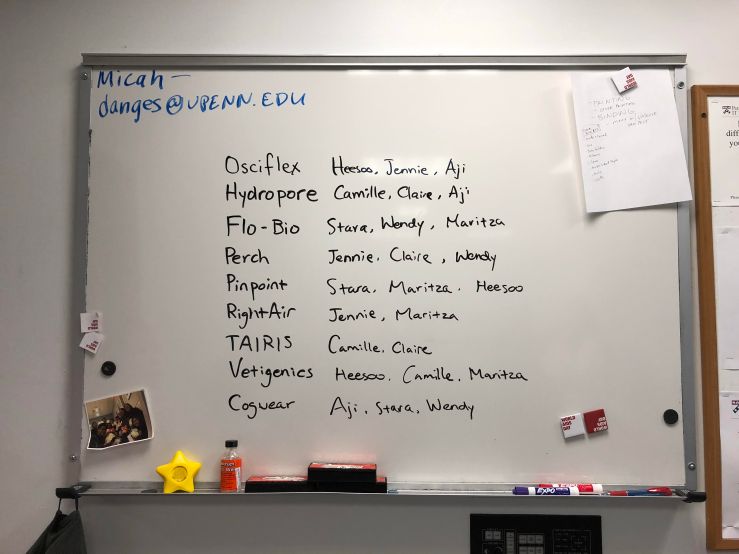 Micah —
danges@UPENN.EDU
Osciflex Heesoo, Jennie, Aji
Hydropore Camille, Claire, Aji
Flo-Bio Stara, Wendy, Maritza
Perch Jennie, Claire, Wendy
Pinpoint Stara, Maritza. Heesoo
RightAir Jennie, Maritza
TAIRIS Camille, Claire
Vetigenics Heesoo, Camille, Maritza
Coguear Aji, Stara, Wendy
- PRINTING
- BINDING
WORLD
AIDS
DAY
EXPO